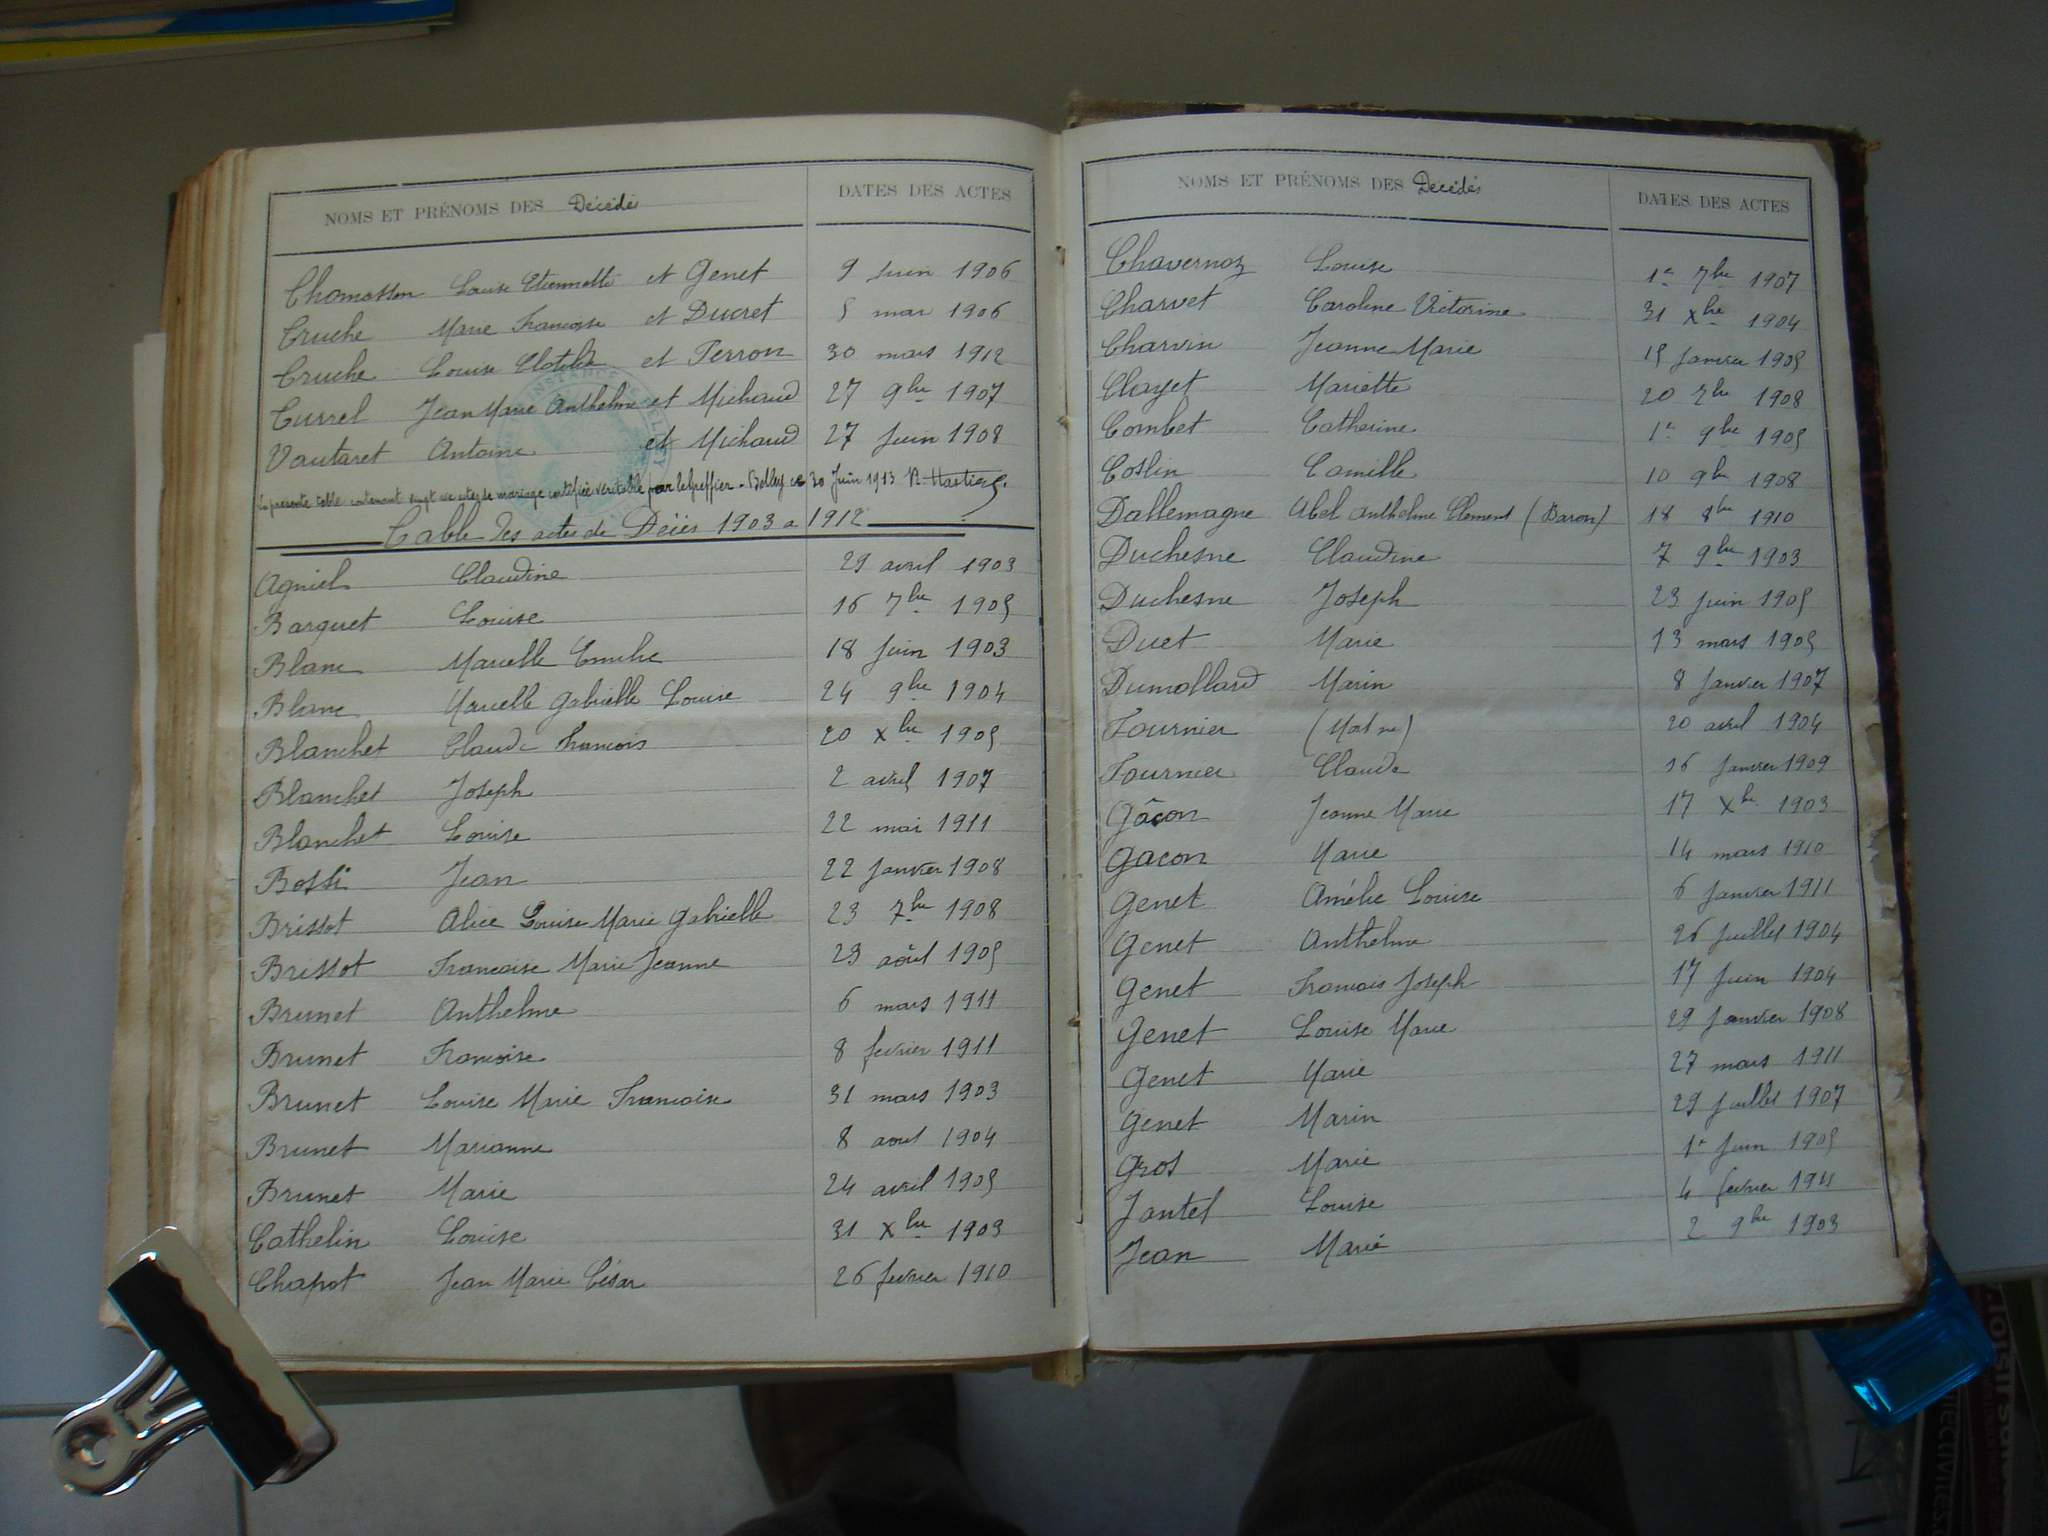 NOMS ET PRÉNOMS DES Décédés DATES DES ACTES
Chomosson Louise Etiennette et Genet 9 Juin 1906
Cruche Marie Francoise et Ducret 5 mar 1906
Cruche Louise Clotilde et Perron 30 mars 1912
Currel Jean Marie Anthelme et Michaud 27 9bre 1907
Vautaret Antoine et Michaud 27 Juin 1908
La presente table contenant vingt six actes de mariage certifiée véritable par le greffier. Belley ce 30 Juin 1913
Table des actes de Décès 1903 a 1912
Agniel Claudine 29 avril 1903
Barquet Louise 16 7bre 1905
Blanc Marcelle Emilie 18 Juin 1903
Blanc Marcelle Gabrielle Louise 24 9bre 1904
Blanchet Claude Francois 20 Xbre 1905
Blanchet Joseph 2 avril 1907
Blanchet Louise 22 mai 1911
Bossi Jean 22 Janvier 1908
Brissot Alice Louise Marie Gabrielle 23 7bre 1908
Brissot Francoise Marie Jeanne 29 août 1905
Brunet Anthelme 6 mars 1911
Brunet Francoise 8 fevrier 1911
Brunet Louise Marie Francoise 31 mars 1903
Brunet Marianne 8 aout 1904
Brunet Marie 24 avril 1905
Cathelin Louise 31 Xbre 1903
Chapot Jean Marie César 26 fevrier 1910
NOMS ET PRÉNOMS DES Décédés DATES DES ACTES
Chavernoz Louise 1er 7bre 1907
Charvet Caroline Victorine 31 Xbre 1904
Charvin Jeanne Marie 15 Janvier 1905
Clayet Mariette 20 7bre 1908
Combet Catherine 1er 9bre 1905
Coslin Camille 10 9bre 1908
Dallemagne Abel Anthelme Clement (Baron) 18 8bre 1910
Duchesne Claudine 7 9bre 1903
Duchesne Joseph 23 Juin 1905
Duet Marie 13 mars 1905
Dumollard Marin 8 Janvier 1907
Fournier (Mort né) 20 avril 1904
Fournier Claude 16 Janvier 1909
Gâcon Jeanne Marie 17 Xbre 1903
Gacon Marie 14 mars 1910
Genet Amélie Louise 6 Janvier 1911
Genet Anthelme 26 Juillet 1904
Genet Francois Joseph 17 Juin 1904
Genet Louise Marie 29 Janvier 1908
Genet Marie 27 mars 1911
Genet Marin 29 Juillet 1907
Gros Marie 1er Juin 1905
Jantel Louise 4 fevrier 1911
Jean Marie 2 9bre 1903